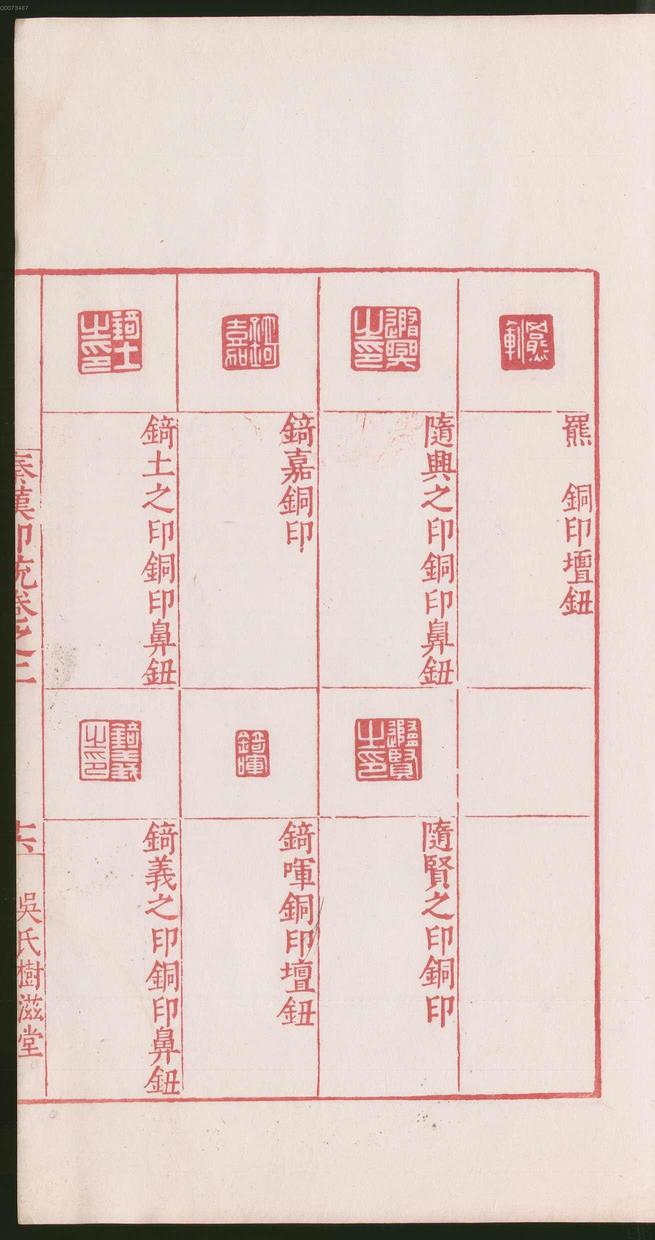 00073467
羆　銅印壇鈕
隨興之印銅印鼻鈕
隨賢之印銅印
錡嘉銅印
錡暉銅印壇鈕
錡土之印銅印鼻鈕
錡義之印銅印鼻鈕
秦漢印統卷之三
十六
吳氏樹滋堂